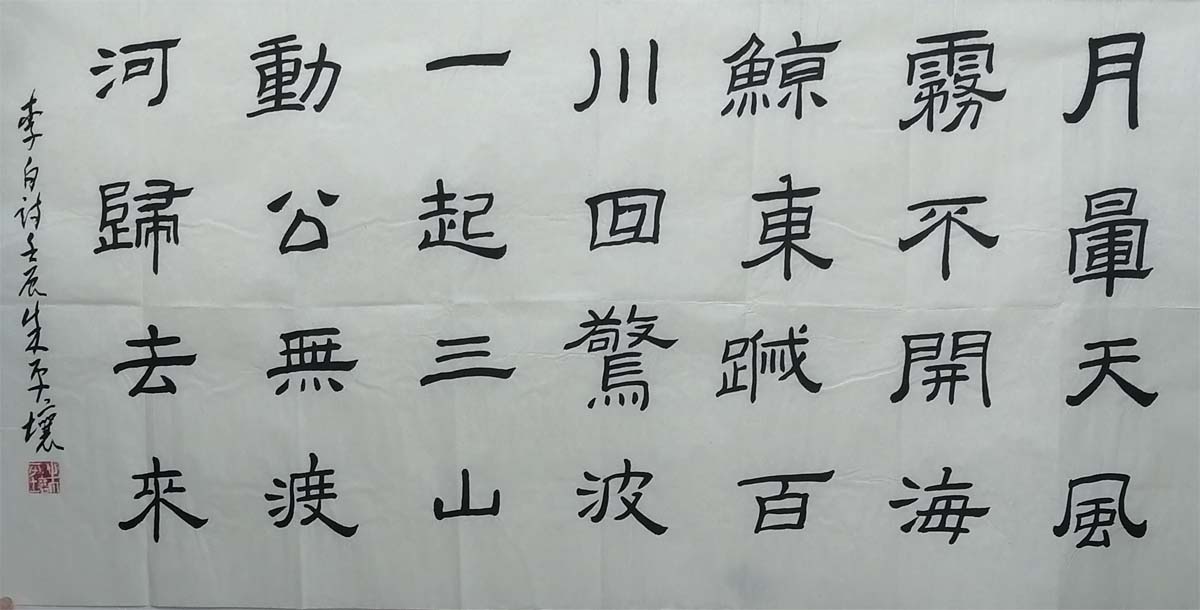 月暈天風
霧不開海
鯨東䠞百
川回驚波
一起三山
動公無渡
河歸去來
李白詩壬辰朱壤